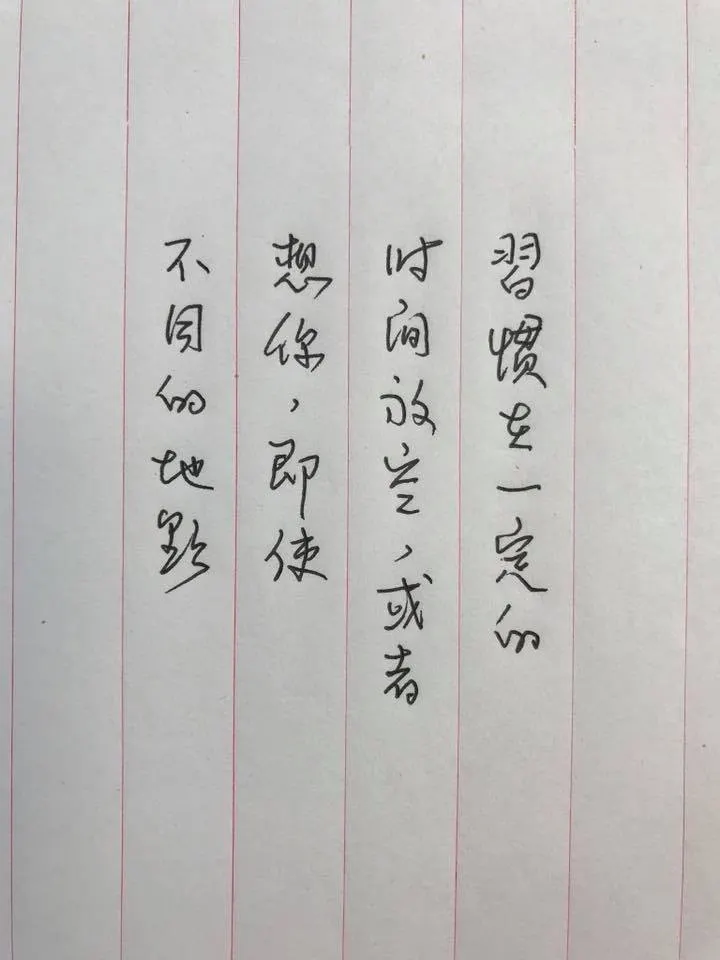 習慣在一定的
时间放空，或者
想你，即使
不同的地點